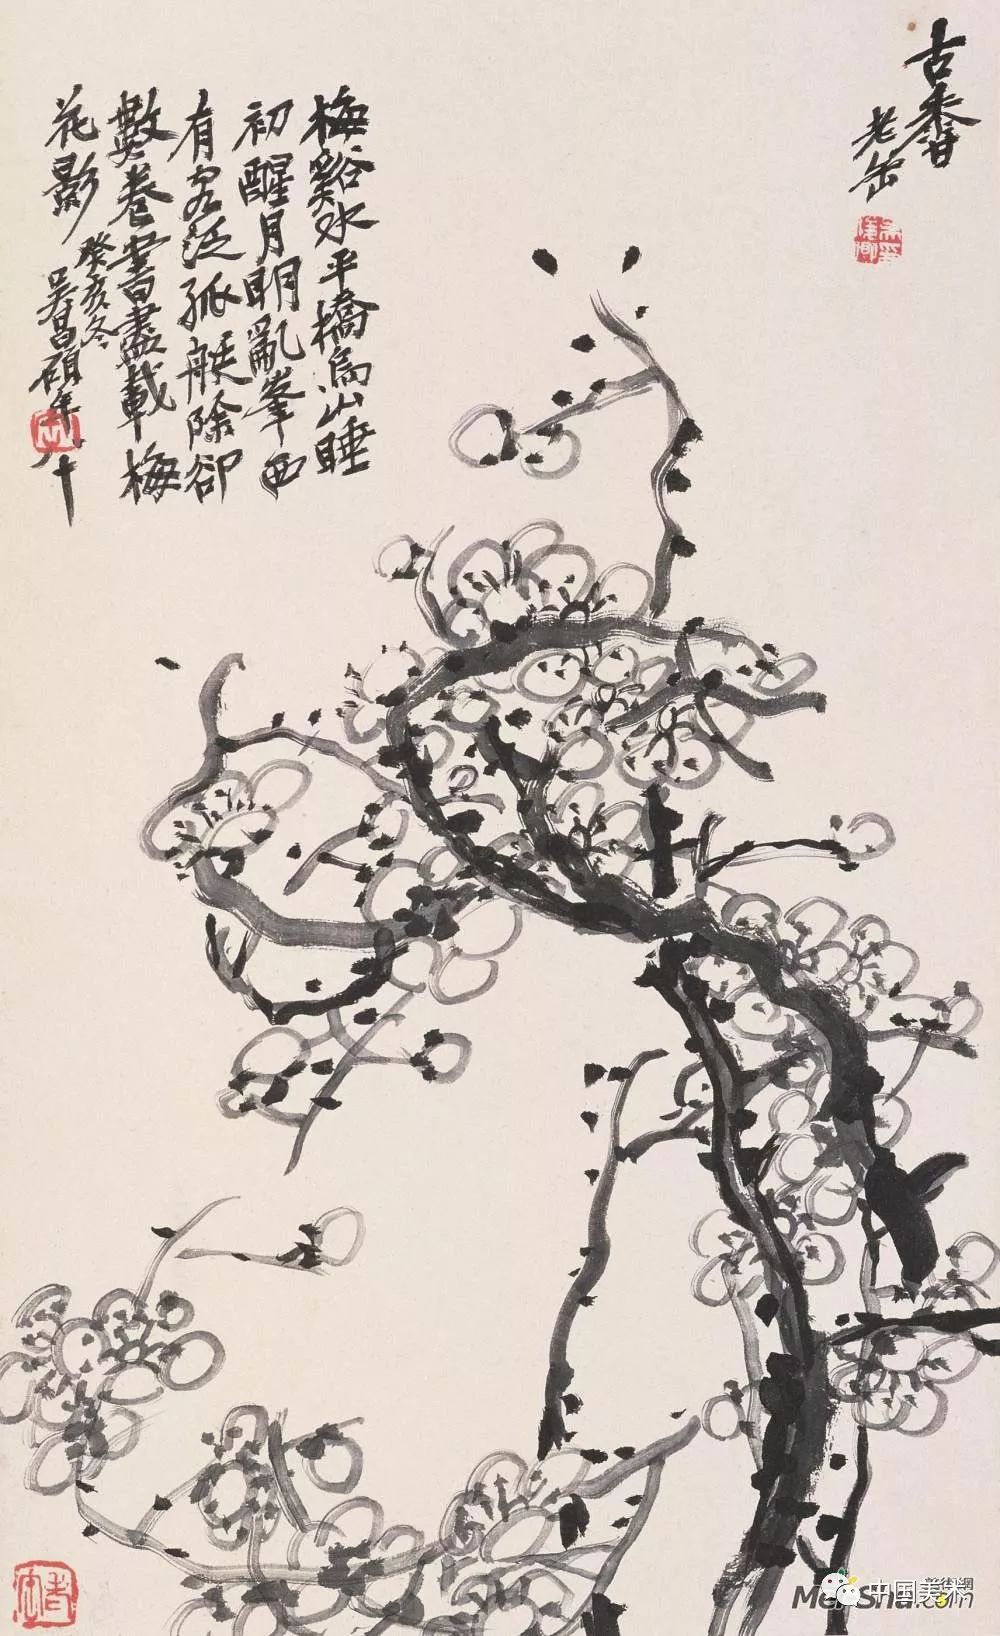 古香
老缶
梅谿水平橋烏山睡
初醒月明亂峯西
有客泛孤艇除卻
數卷書盡載梅
花影
癸亥冬
吳昌碩年八十
中国美术